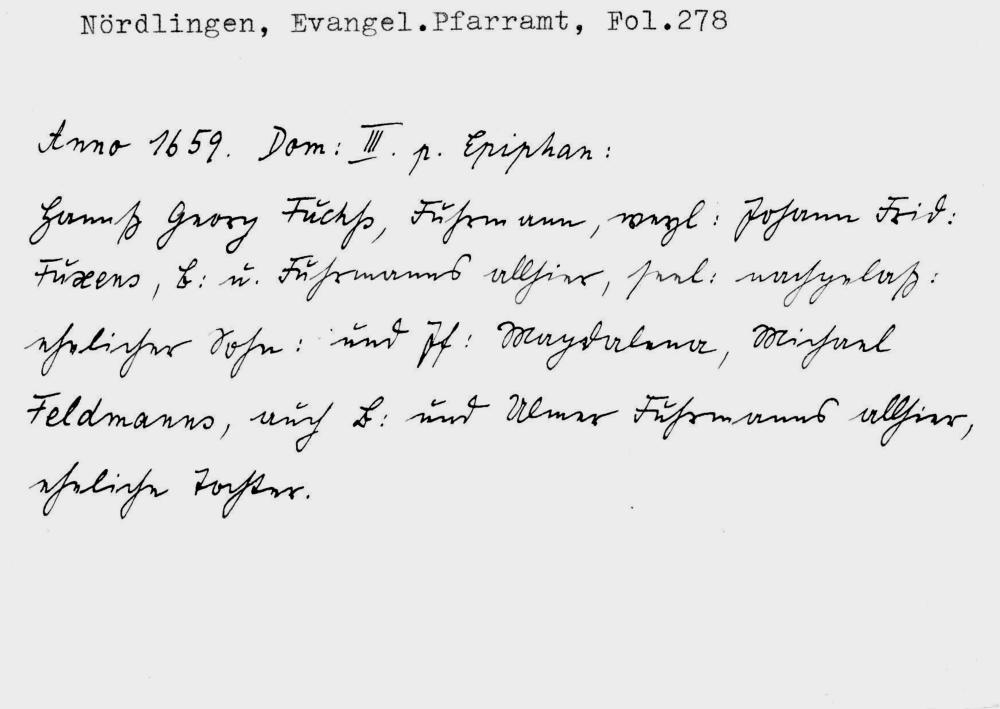 Nördlingen, Evangel.Pfarramt, Fol.278
Anno 1659. Dom: III. p. Epiphan:
Hannß Georg Fuchß, Fuhrmann, weyl: Johann Frid:
Fuxens, B: u. Fuhrmanns allhier, seel: nachgelaß:
ehelicher Sohn: und Jf: Magdalena, Michael
Feldmanns, auch B: und Ulmer Fuhrmanns allhier,
eheliche Tochter.